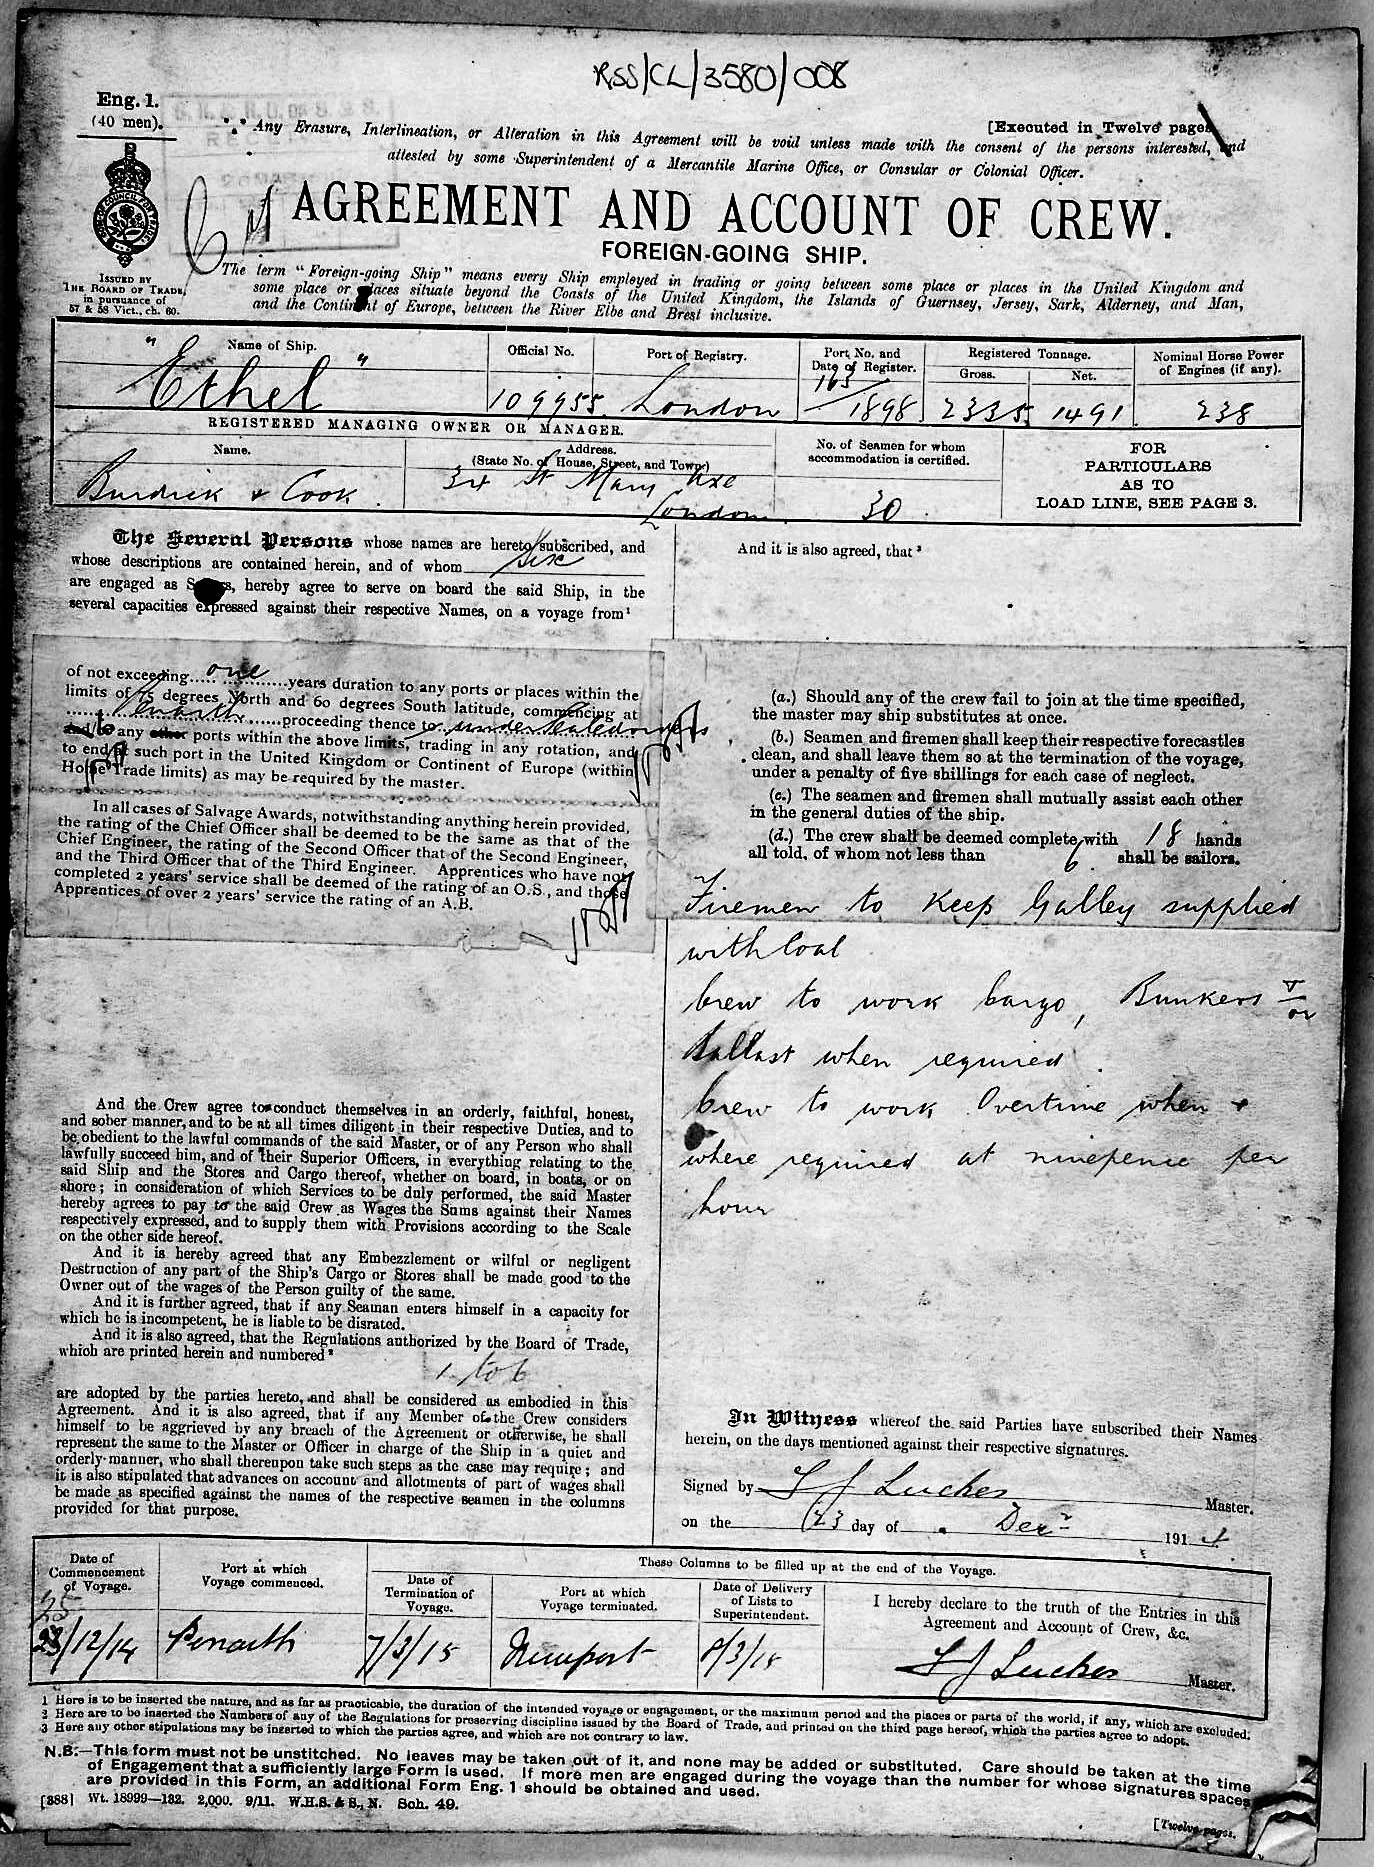 RSS/CL/3580/008
Eng. 1.
(40 men).
[Executed in Twelve pages
*** Any Erasure, Interlineation, or Alteration in this Agreement will be void unless made with the consent of the persons interested, and
attested by some Superintendent of a Mercantile Marine Office, or Consular or Colonial Officer.
AGREEMENT AND ACCOUNT OF CREW.
FOREIGN-GOING SHIP.
ISSUED BY
THE BOARD OF TRADE,
in pursuance of
57 & 58 Vict., ch. 60.
The term "Foreign-going Ship" means every Ship employed in trading or going between some place or places in the United Kingdom and
some place or places situate beyond the Coasts of the United Kingdom, the Islands of Guernsey, Jersey, Sark, Alderney, and Man,
and the Continent of Europe, between the River Elbe and Brest inclusive.
Name of Ship.
Official No.
Port of Registry.
Port No. and
Date of Register.
Registered Tonnage.
Gross.
Net.
Nominal Horse Power
of Engines (if any).
"Ethel"
109955
London
163/1898
2335
1491
238
REGISTERED MANAGING OWNER OR MANAGER.
Name.
Address.
(State No. of House, Street, and Town.)
No. of Seamen for whom
accommodation is certified.
FOR
PARTICULARS
AS TO
LOAD LINE, SEE PAGE 3.
Burdick & Cook
34 St Mary Axe
London
30
The Several Persons whose names are hereto subscribed, and
whose descriptions are contained herein, and of whom Six
are engaged as S s, hereby agree to serve on board the said Ship, in the
several capacities expressed against their respective Names, on a voyage from¹
of not exceeding one years duration to any ports or places within the
limits of 75 degrees North and 60 degrees South latitude, commencing at
Penarth proceeding thence to
and/to any other ports within the above limits, trading in any rotation, and
to end at such port in the United Kingdom or Continent of Europe (within
Home Trade limits) as may be required by the master.
In all cases of Salvage Awards, notwithstanding anything herein provided,
the rating of the Chief Officer shall be deemed to be the same as that of the
Chief Engineer, the rating of the Second Officer that of the Second Engineer,
and the Third Officer that of the Third Engineer. Apprentices who have not
completed 2 years' service shall be deemed of the rating of an O.S., and those
Apprentices of over 2 years' service the rating of an A.B.
And the Crew agree to conduct themselves in an orderly, faithful, honest,
and sober manner, and to be at all times diligent in their respective Duties, and to
be obedient to the lawful commands of the said Master, or of any Person who shall
lawfully succeed him, and of their Superior Officers, in everything relating to the
said Ship and the Stores and Cargo thereof, whether on board, in boats, or on
shore; in consideration of which Services to be duly performed, the said Master
hereby agrees to pay to the said Crew as Wages the Sums against their Names
respectively expressed, and to supply them with Provisions according to the Scale
on the other side hereof.
And it is hereby agreed that any Embezzlement or wilful or negligent
Destruction of any part of the Ship's Cargo or Stores shall be made good to the
Owner out of the wages of the Person guilty of the same.
And it is further agreed, that if any Seaman enters himself in a capacity for
which he is incompetent, he is liable to be disrated.
And it is also agreed, that the Regulations authorized by the Board of Trade,
which are printed herein and numbered²
1 to 6
are adopted by the parties hereto, and shall be considered as embodied in this
Agreement. And it is also agreed, that if any Member of the Crew considers
himself to be aggrieved by any breach of the Agreement or otherwise, he shall
represent the same to the Master or Officer in charge of the Ship in a quiet and
orderly manner, who shall thereupon take such steps as the case may require; and
it is also stipulated that advances on account and allotments of part of wages shall
be made as specified against the names of the respective seamen in the columns
provided for that purpose.
And it is also agreed, that³
(a.) Should any of the crew fail to join at the time specified,
the master may ship substitutes at once.
(b.) Seamen and firemen shall keep their respective forecastles
clean, and shall leave them so at the termination of the voyage,
under a penalty of five shillings for each case of neglect.
(c.) The seamen and firemen shall mutually assist each other
in the general duties of the ship.
(d.) The crew shall be deemed complete with 18 hands
all told, of whom not less than 6 shall be sailors.
Firemen to keep Galley supplied
with Coal
Crew to work Cargo, Bunkers & or
Ballast when required.
Crew to work Overtime when &
where required at ninepence per
hour
In Witness whereof the said Parties have subscribed their Names
herein, on the days mentioned against their respective signatures.
Signed by Luckes Master.
on the 23 day of Decr 1914.
Date of
Commencement
of Voyage.
Port at which
Voyage commenced.
These Columns to be filled up at the end of the Voyage.
Date of
Termination of
Voyage.
Port at which
Voyage terminated.
Date of Delivery
of Lists to
Superintendent.
I hereby declare to the truth of the Entries in this
Agreement and Account of Crew, &c.
25
23/12/14
Penarth
7/3/15
Newport
8/3/15
Luckes Master.
1 Here is to be inserted the nature, and as far as practicable, the duration of the intended voyage or engagement, or the maximum period and the places or parts of the world, if any, which are excluded.
2 Here are to be inserted the Numbers of any of the Regulations for preserving discipline issued by the Board of Trade, and printed on the third page hereof, which the parties agree to adopt.
3 Here any other stipulations may be inserted to which the parties agree, and which are not contrary to law.
N.B.—This form must not be unstitched. No leaves may be taken out of it, and none may be added or substituted. Care should be taken at the time
of Engagement that a sufficiently large Form is used. If more men are engaged during the voyage than the number for whose signatures spaces
are provided in this Form, an additional Form Eng. 1 should be obtained and used.
[388] Wt. 18999—132. 2,000. 9/11. W.H.S. & S., N. Sch. 49.
[Twelve pages.